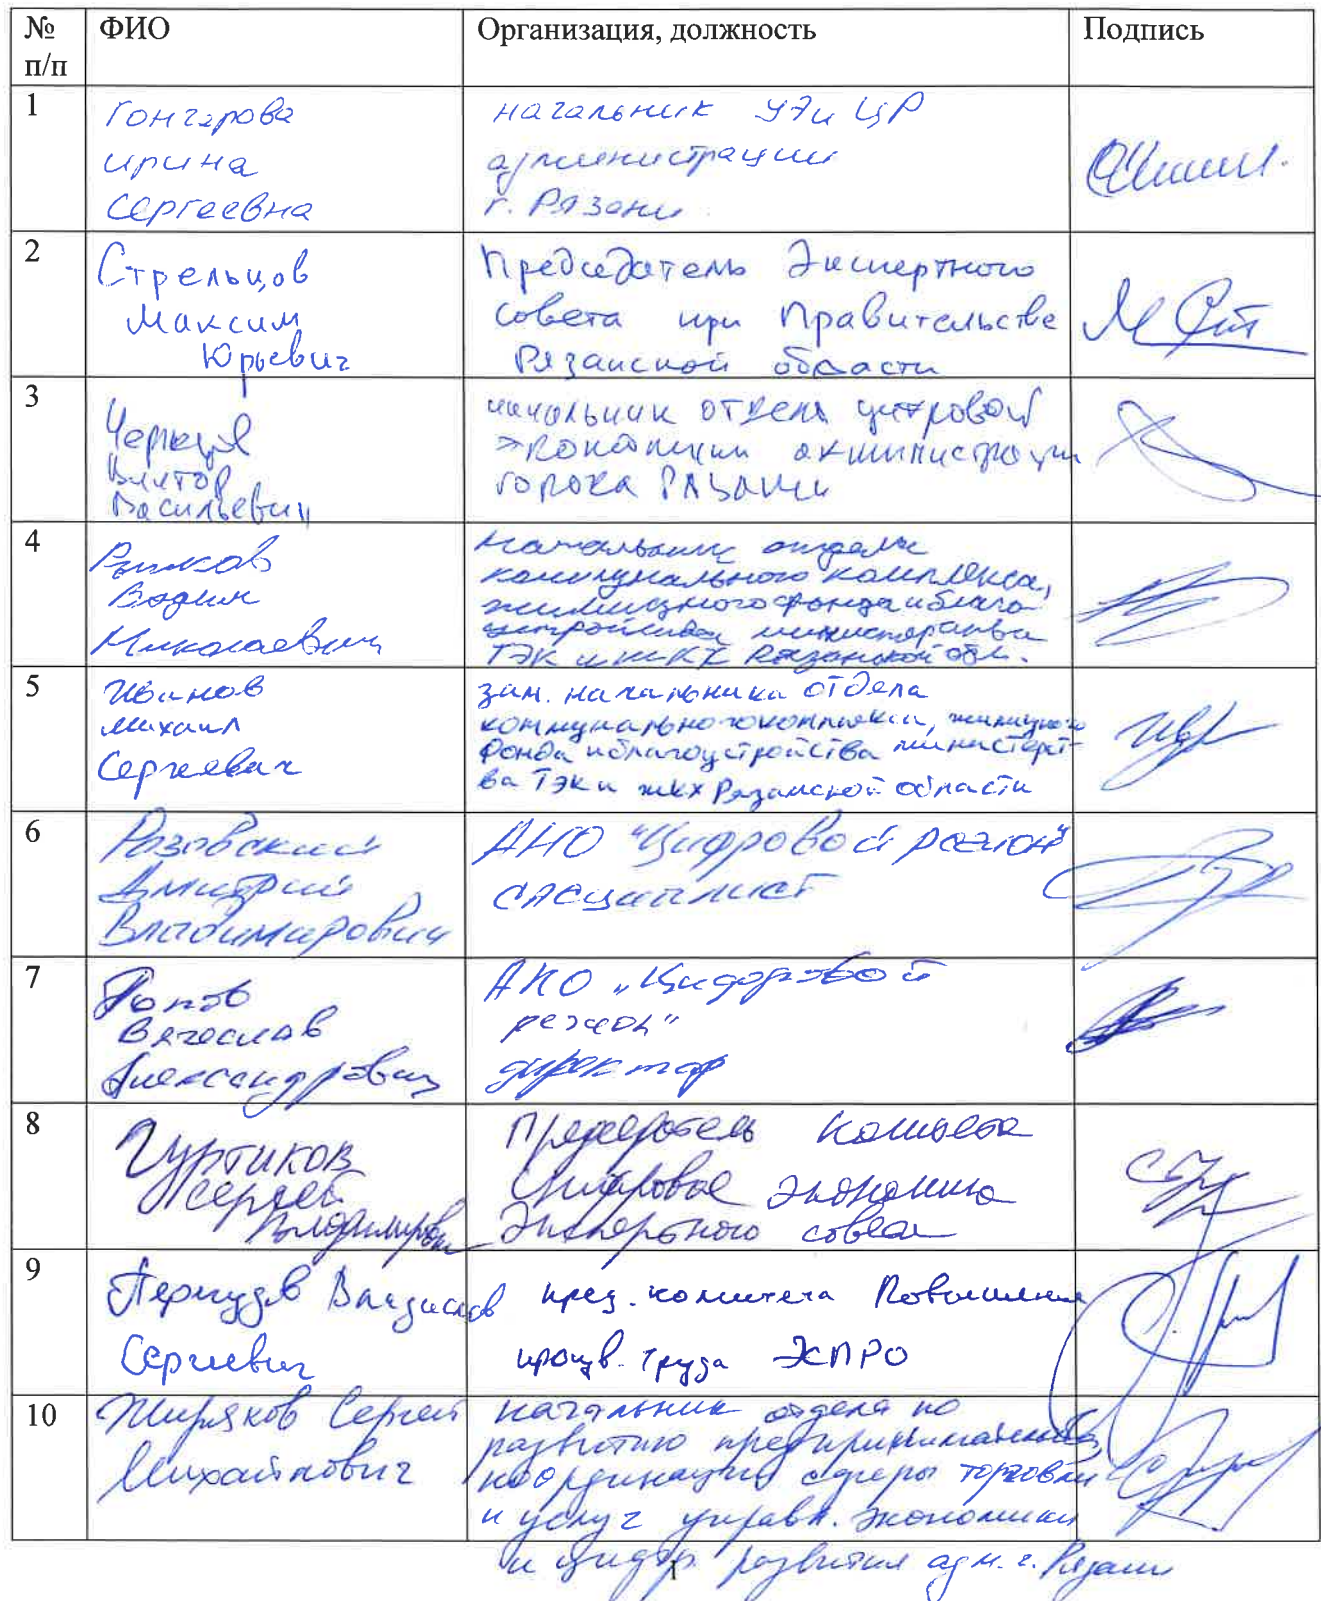 № п/п
ФИО
Организация, должность
Подпись
1
Гончарова
Ирина
Сергеевна
начальник УЭиЦР
администрации
г. Рязани
2
Стрельцов
Максим
Юрьевич
Председатель Экспертного
совета при Правительстве
Рязанской области
3
Виктор
Васильевич
начальник отдела цифровой
экономики администрации
города Рязани
4
Рыжков
Вадим
Николаевич
начальник отдела
коммунального комплекса,
жилищного фонда и благо
устройства министерства
ТЭК и ЖКХ Рязанской обл.
5
Иванов
Михаил
Сергеевич
зам. начальника отдела
коммунального комплекса, жилищного
фонда и благоустройства министерст-
ва ТЭК и ЖКХ Рязанской области
6
Розовский
Дмитрий
Владимирович
АНО "Цифровой регион"
специалист
7
Попов
Вячеслав
Александрович
АНО "Цифровой
регион"
директор
8
Чуртиков
Сергей
Владимирович
Председатель Комитета
Цифровое экономика
Экспертного совета
9
Владислав
Сергеевич
пред. комитета Повышения
произв. труда ЭСПРО
10
Жиряков Сергей
Михайлович
начальник отдела по
развитию предпринимательства,
координации сферы торговли
и услуг управл. экономики
и цифр. развития адм. г. Рязани